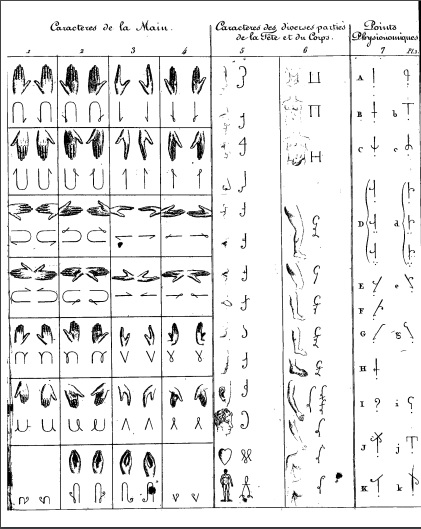 Caractères de la Main.
Caractères des diverses parties
de la Tête et du Corps.
Points
Physionomiques
1 2 3 4 5 6 7 Pl.1.
A
B b
C c
D d
E e
F
G g
H
I i
J j
K k